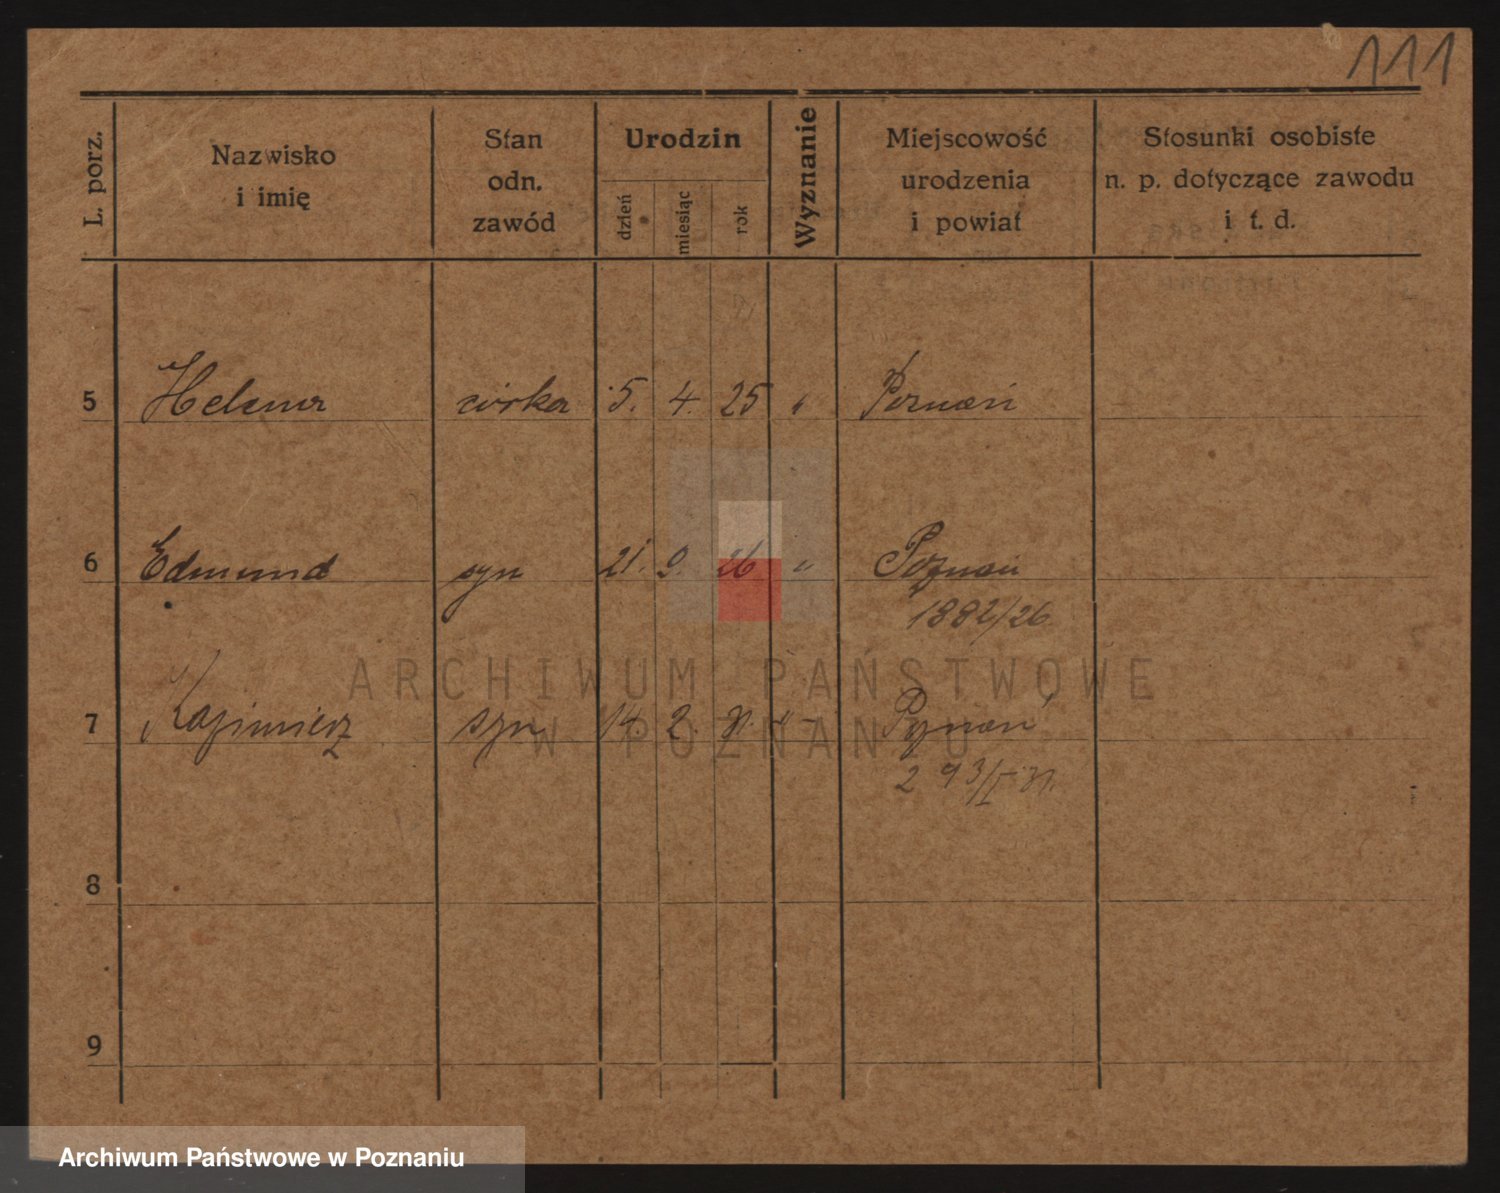 111
L. porz.
Nazwisko
i imię
Stan
odn.
zawód
Urodzin
dzień
miesiąc
rok
Wyznanie
Miejscowość
urodzenia
i powiat
Stosunki osobiste
n. p. dotyczące zawodu
i t. d.
5 Helena córka 5. 4. 25 " Poznań
6 Edmund syn 21. 9. 26 " Poznań
1882/26
7 Kazimierz syn 14. 2. 31. " Poznań
293/I 31.
8
9
ARCHIWUM PAŃSTWOWE
W POZNANIU
Archiwum Państwowe w Poznaniu